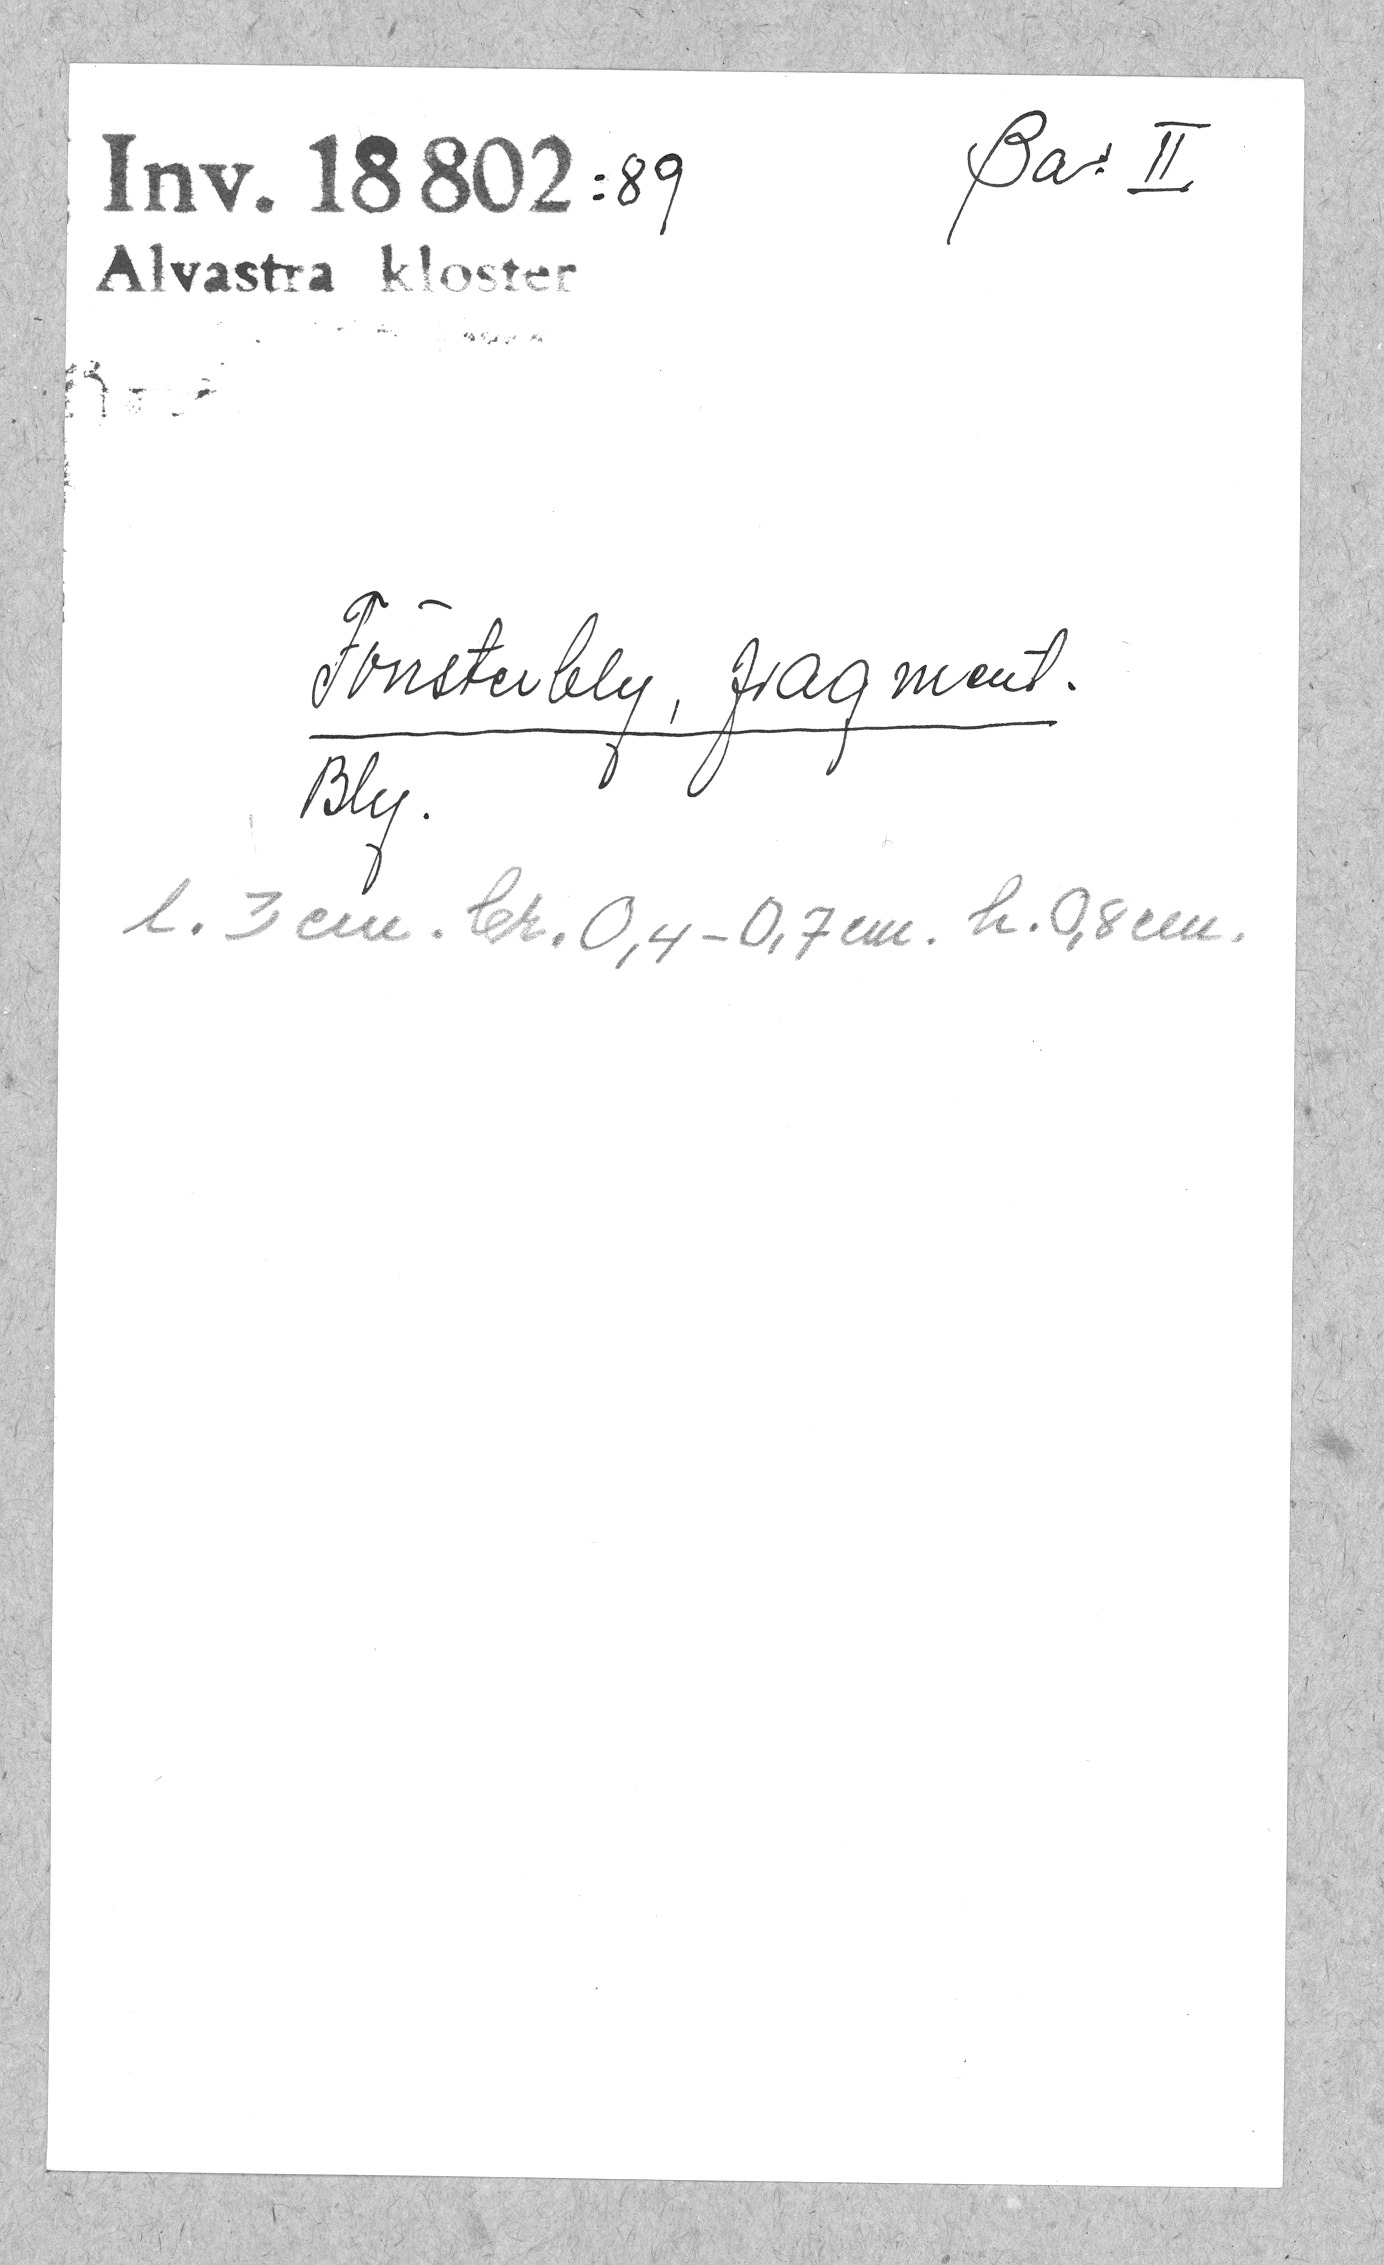 Inv. 18 802:89
Bas II
Alvastra kloster
Fönsterbly, fragment.
Bly.
l. 3 cm. br. 0,4-0,7 cm. h. 0,8 cm.